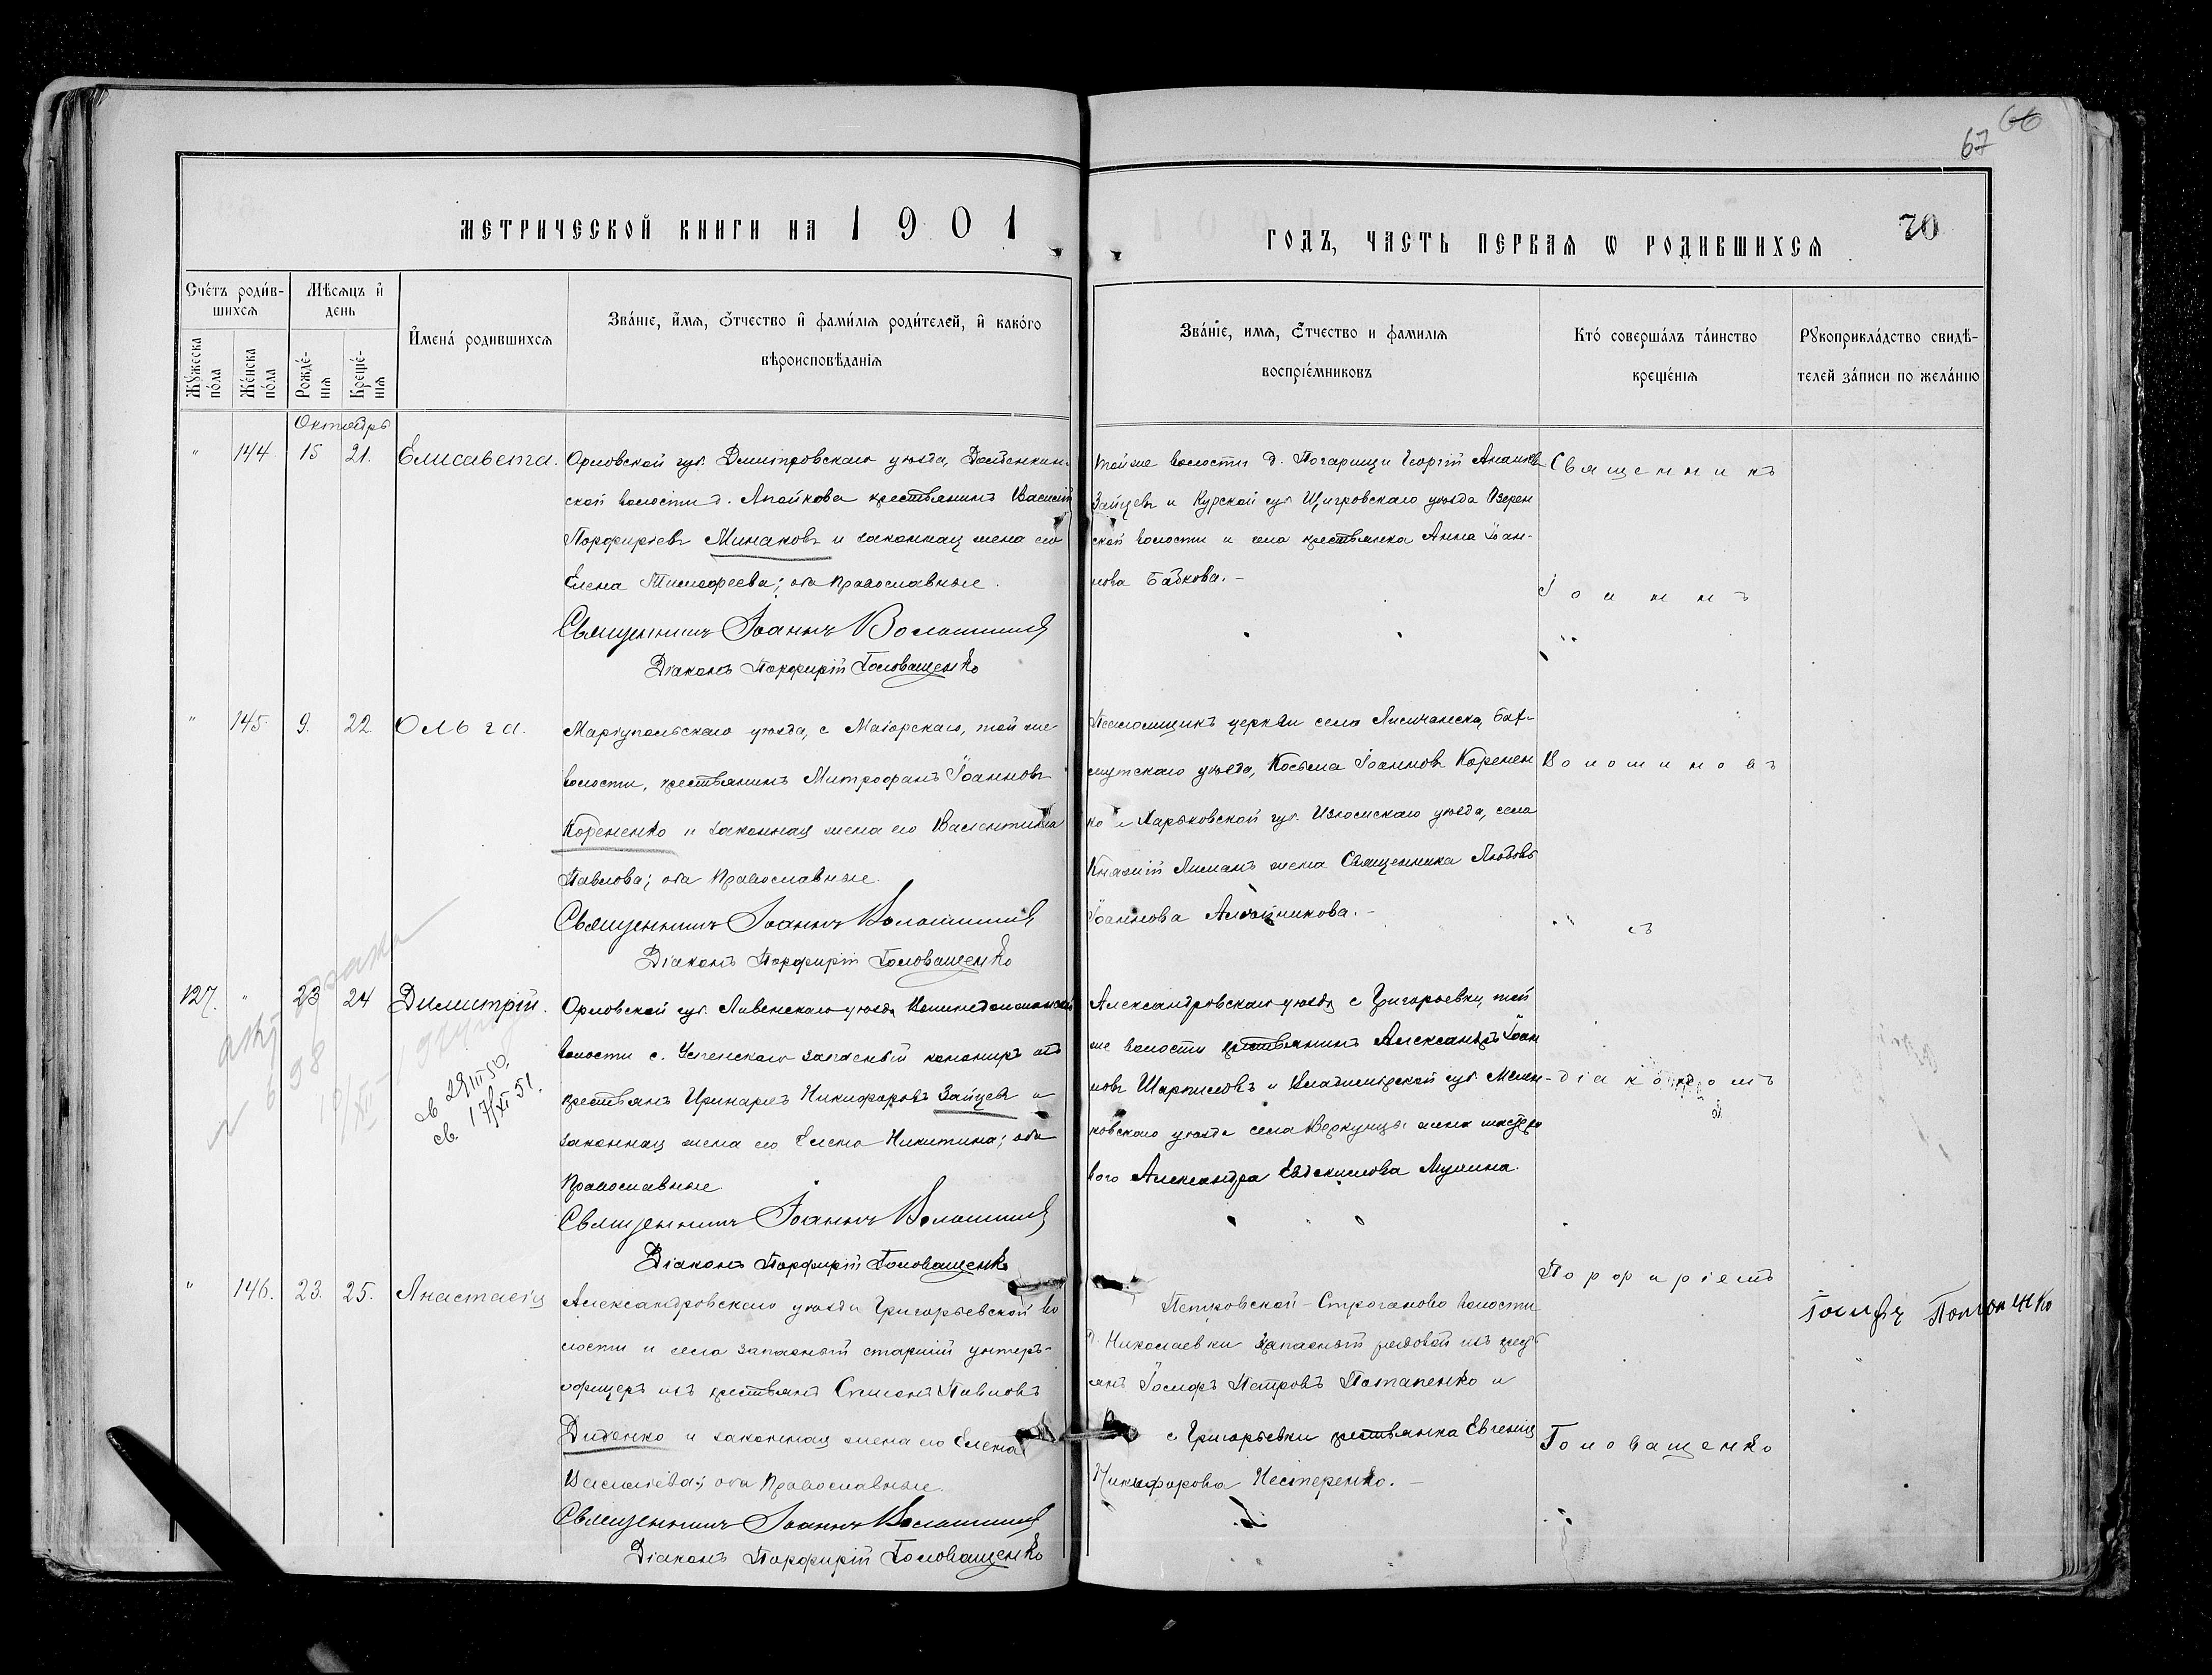 66
67
МЕТРИЧЕСКОЙ КНИГИ НА 1901
ГОДЪ, ЧАСТЬ ПЕРВАЯ Ѡ РОДИВШИХСЯ
70
Счетъ родив-
шихся
Мѣсяцъ и
день
Мужеска
пола
Женска
пола
Рожде-
нія
Креще-
нія
Имена родившихся
Званіе, имя, отчество и фамилія родителей, и какого
вѣроисповѣданія
Званіе, имя, отчество и фамилія
воспріемниковъ
Кто совершалъ таинство
крещенія
Рукоприкладство свидѣ-
телей записи по желанію
Октябрь
" 144 15 21. Елисавета.
Орловской губ. Дмитровскаго уѣзда,
ской волости д. крестьянинъ Василій
Порфиріевъ Минаковъ и законная жена его
Елена Тимофеева; оба православные.
Священникъ Іоаннъ Волошиновъ
Діаконъ Порфирій Головащенко
той же волости д. Погарищи Георгій
Зайцевъ и Курской губ. Щигровскаго уѣзда Озерен
ской волости и села крестьянка Анна Іоан-
нова Бабкова.-
Священникъ
Іоаннъ
" 145. 9. 22. Ольга.
Маріупольскаго уѣзда, с Маіорскаго, той же
волости, крестьянинъ Митрофанъ Іоанновъ
Корененко и законная жена его Валентина
Павлова; оба православные.
Священникъ Іоаннъ Волошиновъ
Діаконъ Порфирій Головащенко
Псаломщикъ церкви села Лисичанска, Бах-
мутскаго уѣзда, Косьма Іоанновъ Коренен
ко и Харьковской губ. Изюмскаго уѣзда, села
Княжій Лиманъ жена Священника Любовь
Іоаннова
Волошиновъ
съ
127. " 23 24 Димитрій.
Орловской губ. Ливенскаго уѣзда
волости с. Успенскаго запасный изъ
крестьянъ Иринархъ Никифоровъ Зайцевъ и
законная жена его Елена Никитина; оба
православные
Священникъ Іоаннъ Волошиновъ
Діаконъ Порфирій Головащенко
Александровскаго уѣзда с Григорьевки, той
же волости крестьянинъ Александръ Іоан
новъ Шарпиловъ и Владимірской губ. Мелен-
ковскаго уѣзда села жена мастеро
вого Александра Евдокимова
-діакономъ
св 29/III 50.
св. 17/XI 51.
" 146. 23. 25. Анастасія
Александровскаго уѣзда Григорьевской во
лости и села запасный старшій унтеръ-
офицеръ изъ крестьянъ Симеонъ Павловъ
Диденко и законная жена его Елена
Васильева; оба православные.
Священникъ Іоаннъ Волошиновъ
Діаконъ Порфирій Головащенко
Петровской-Строганово волости
д. Николаевки запасный рядовой изъ крест
янъ Іосифъ Петровъ Потапенко и
с Григорьевки крестьянка Евгенія
Никифорова Нестеренко.-
Порфиріемъ
Головащенко
Іосифъ